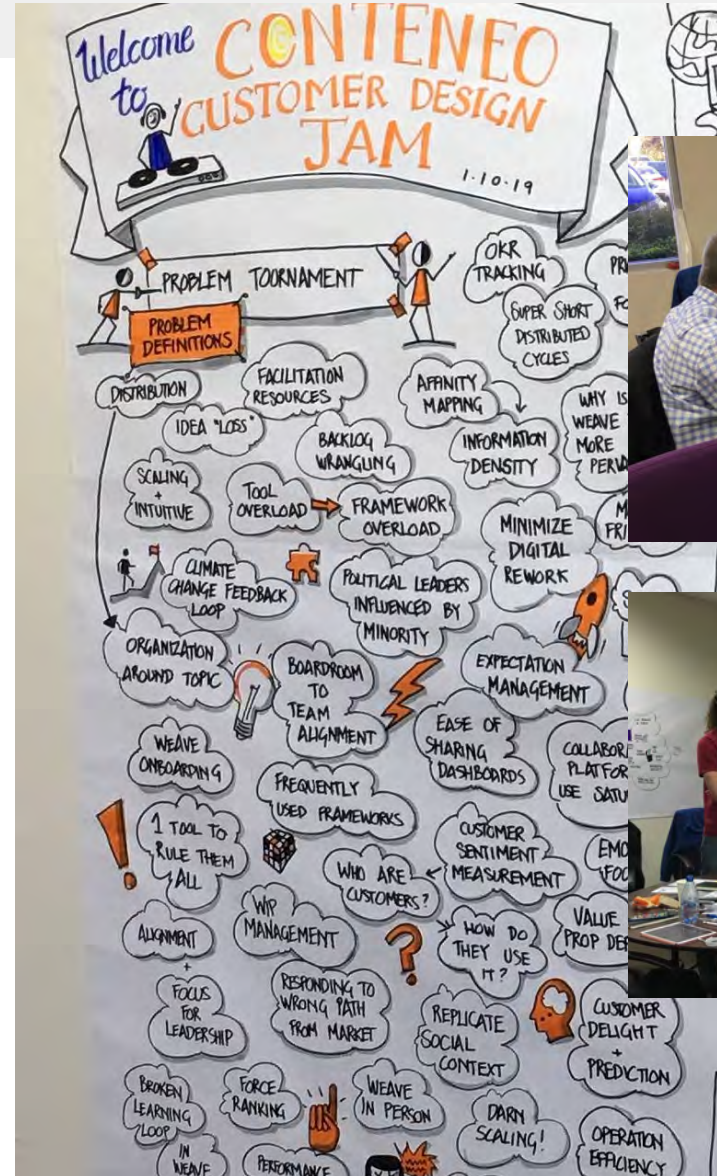 Welcome
to
CONTENEO
CUSTOMER DESIGN
JAM
1.10.19
PROBLEM TOORNAMENT
PROBLEM
DEFINITIONS
OKR
TRACKING
SUPER SHORT
DISTRIBUTED
CYCLES
DISTRIBUTION
FACILITATION
RESOURCES
AFFINITY
MAPPING
WHY IS
WEAVE
MORE
IDEA "LOSS"
BACKLOG
WRANGLING
INFORMATION
DENSITY
SCALING
+
INTUITIVE
TOOL
OVERLOAD
FRAMEWORK
OVERLOAD
MINIMIZE
DIGITAL
REWORK
CLIMATE
CHANGE FEEDBACK
LOOP
POLITICAL LEADERS
INFLUENCED BY
MINORITY
ORGANIZATION
AROUND TOPIC
BOARDROOM
TO
TEAM
ALIGNMENT
EXPECTATION
MANAGEMENT
WEAVE
ONBOARDING
EASE OF
SHARING
DASHBOARDS
USE
FREQUENTLY
USED FRAMEWORKS
1 TOOL TO
RULE THEM
ALL
CUSTOMER
SENTIMENT
MEASUREMENT
WHO ARE
CUSTOMERS?
ALIGNMENT
+
FOCUS
FOR
LEADERSHIP
WIP
MANAGEMENT
HOW DO
THEY USE
IT?
VALUE
PROP
RESPONDING TO
WRONG PATH
FROM MARKET
REPLICATE
SOCIAL
CONTEXT
CUSTOMER
DELIGHT
+
PREDICTION
BROKEN
LEARNING
LOOP
IN
WEAVE
FORCE
RANKING
WEAVE
IN PERSON
DARN
SCALING!
OPERATION
EFFICIENCY
PERFORMANCE